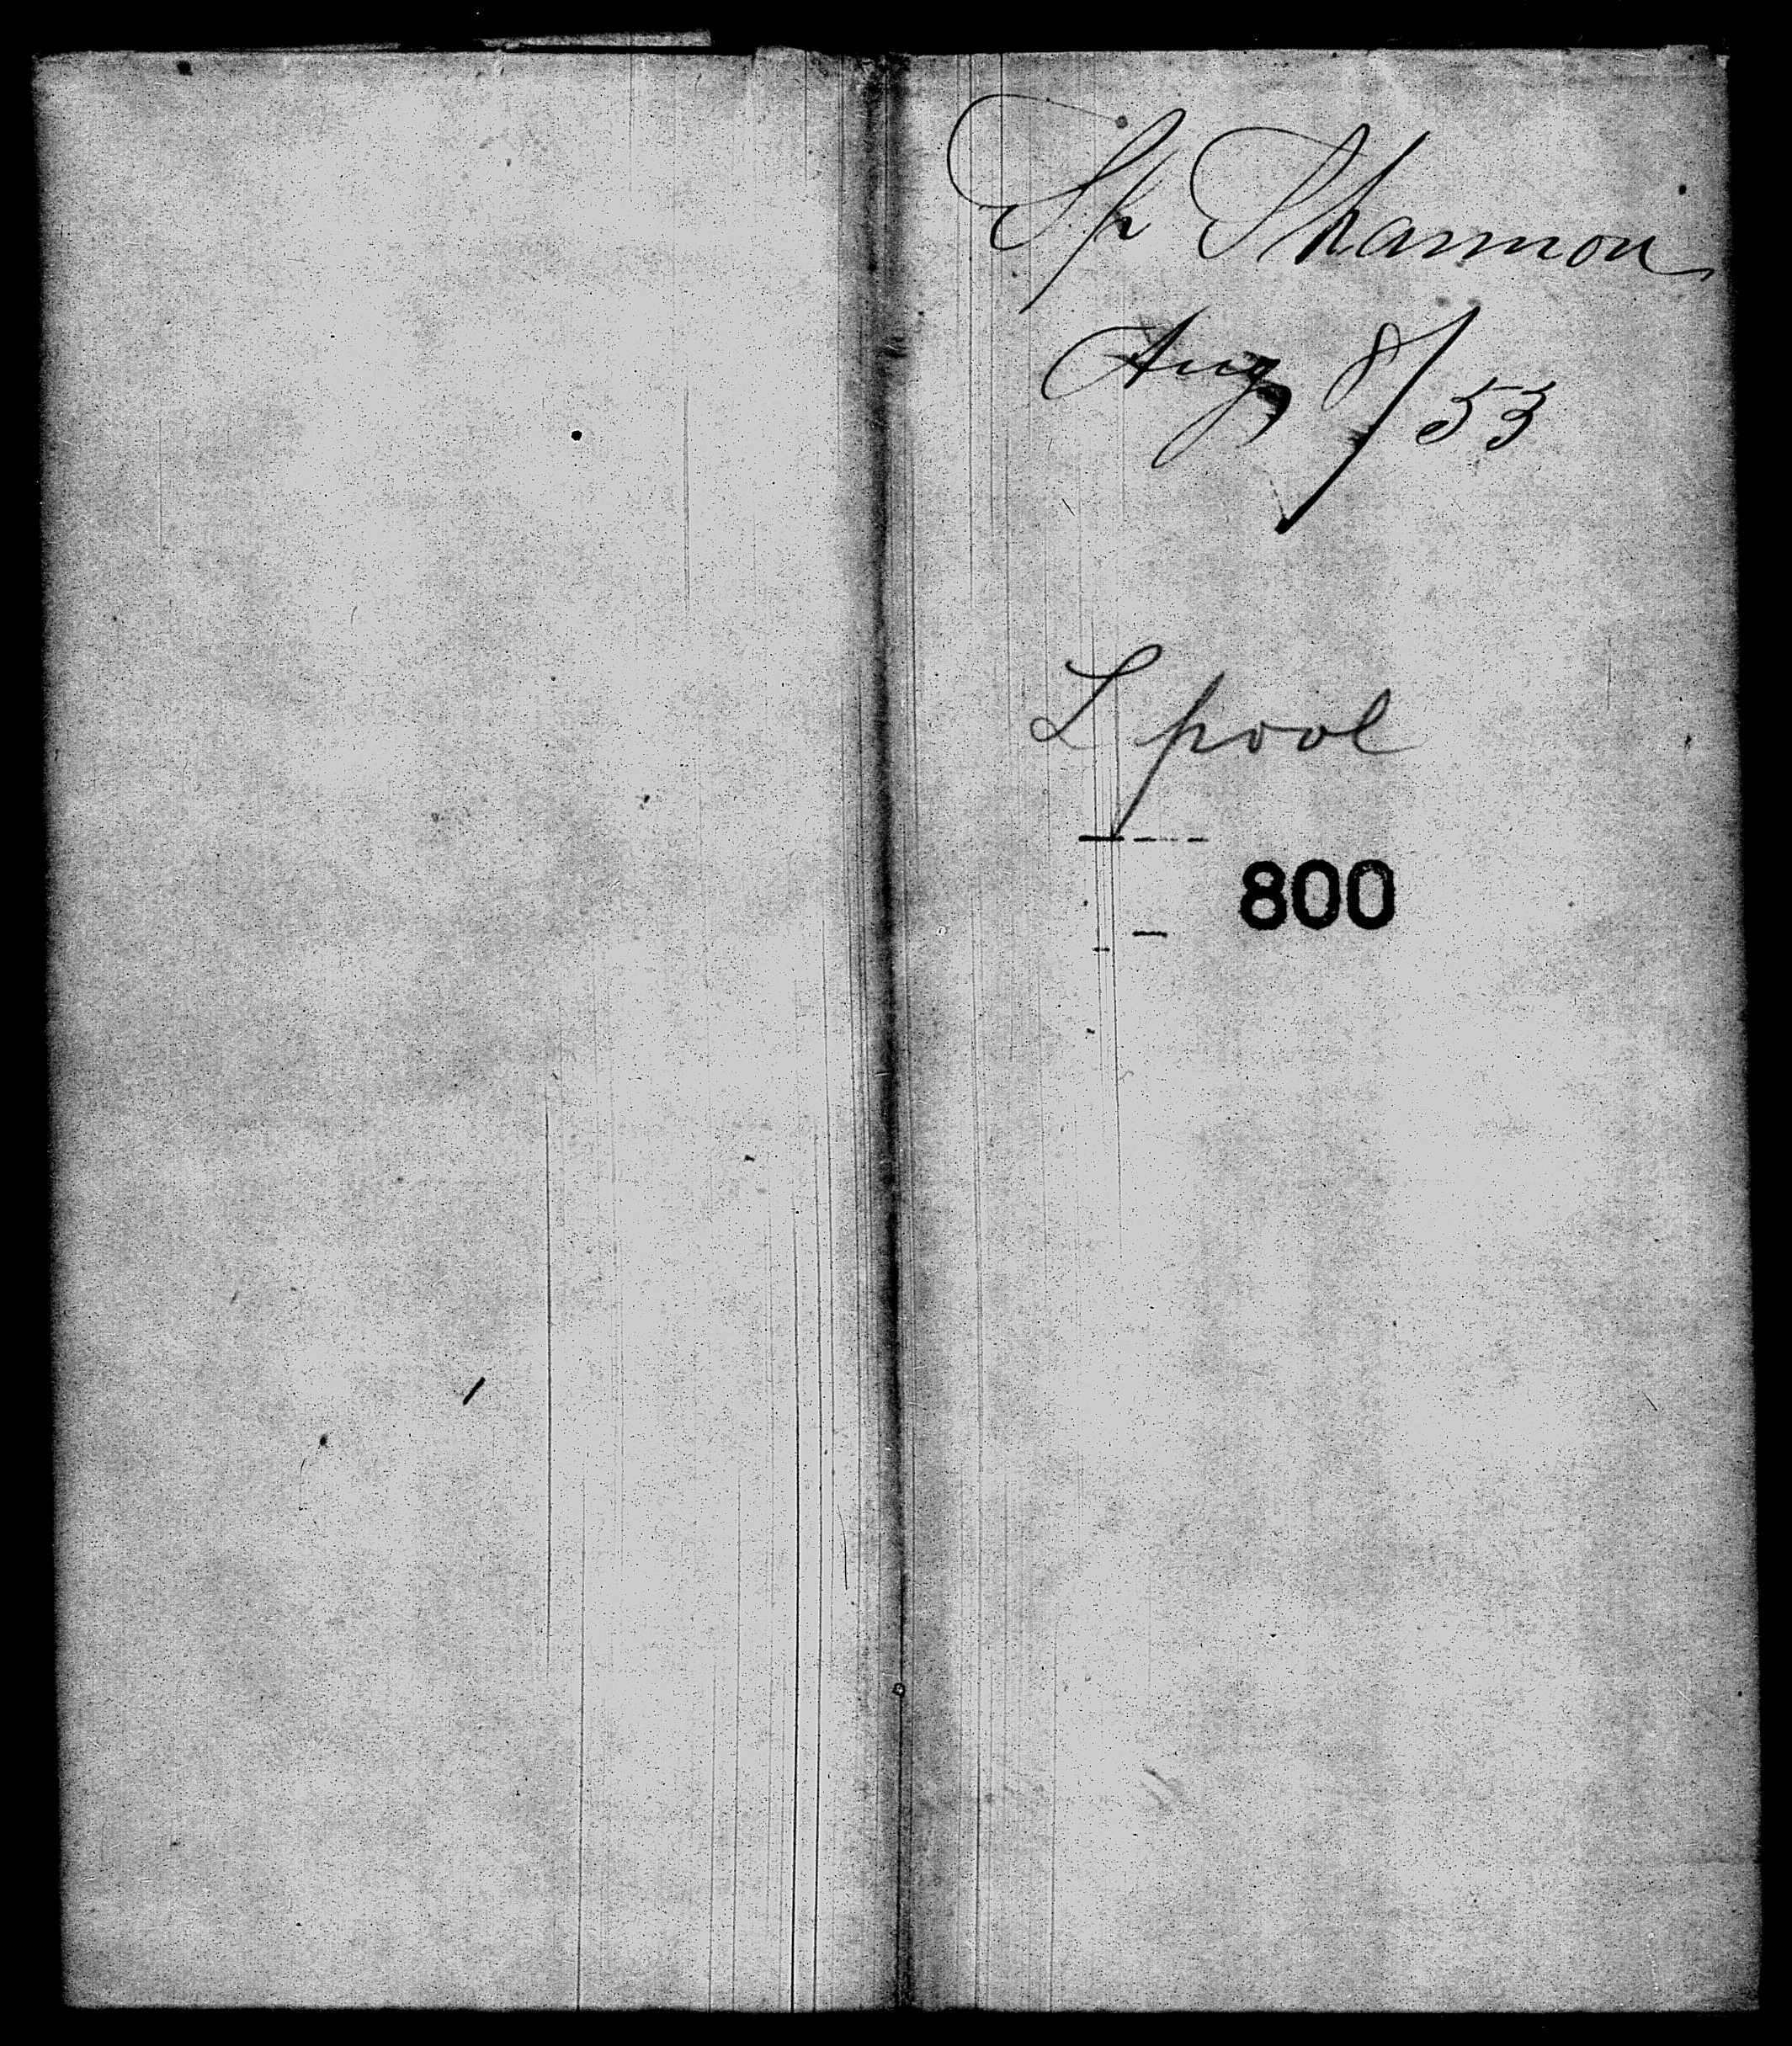 Sh Shannon
Aug 8/53
L pool
800